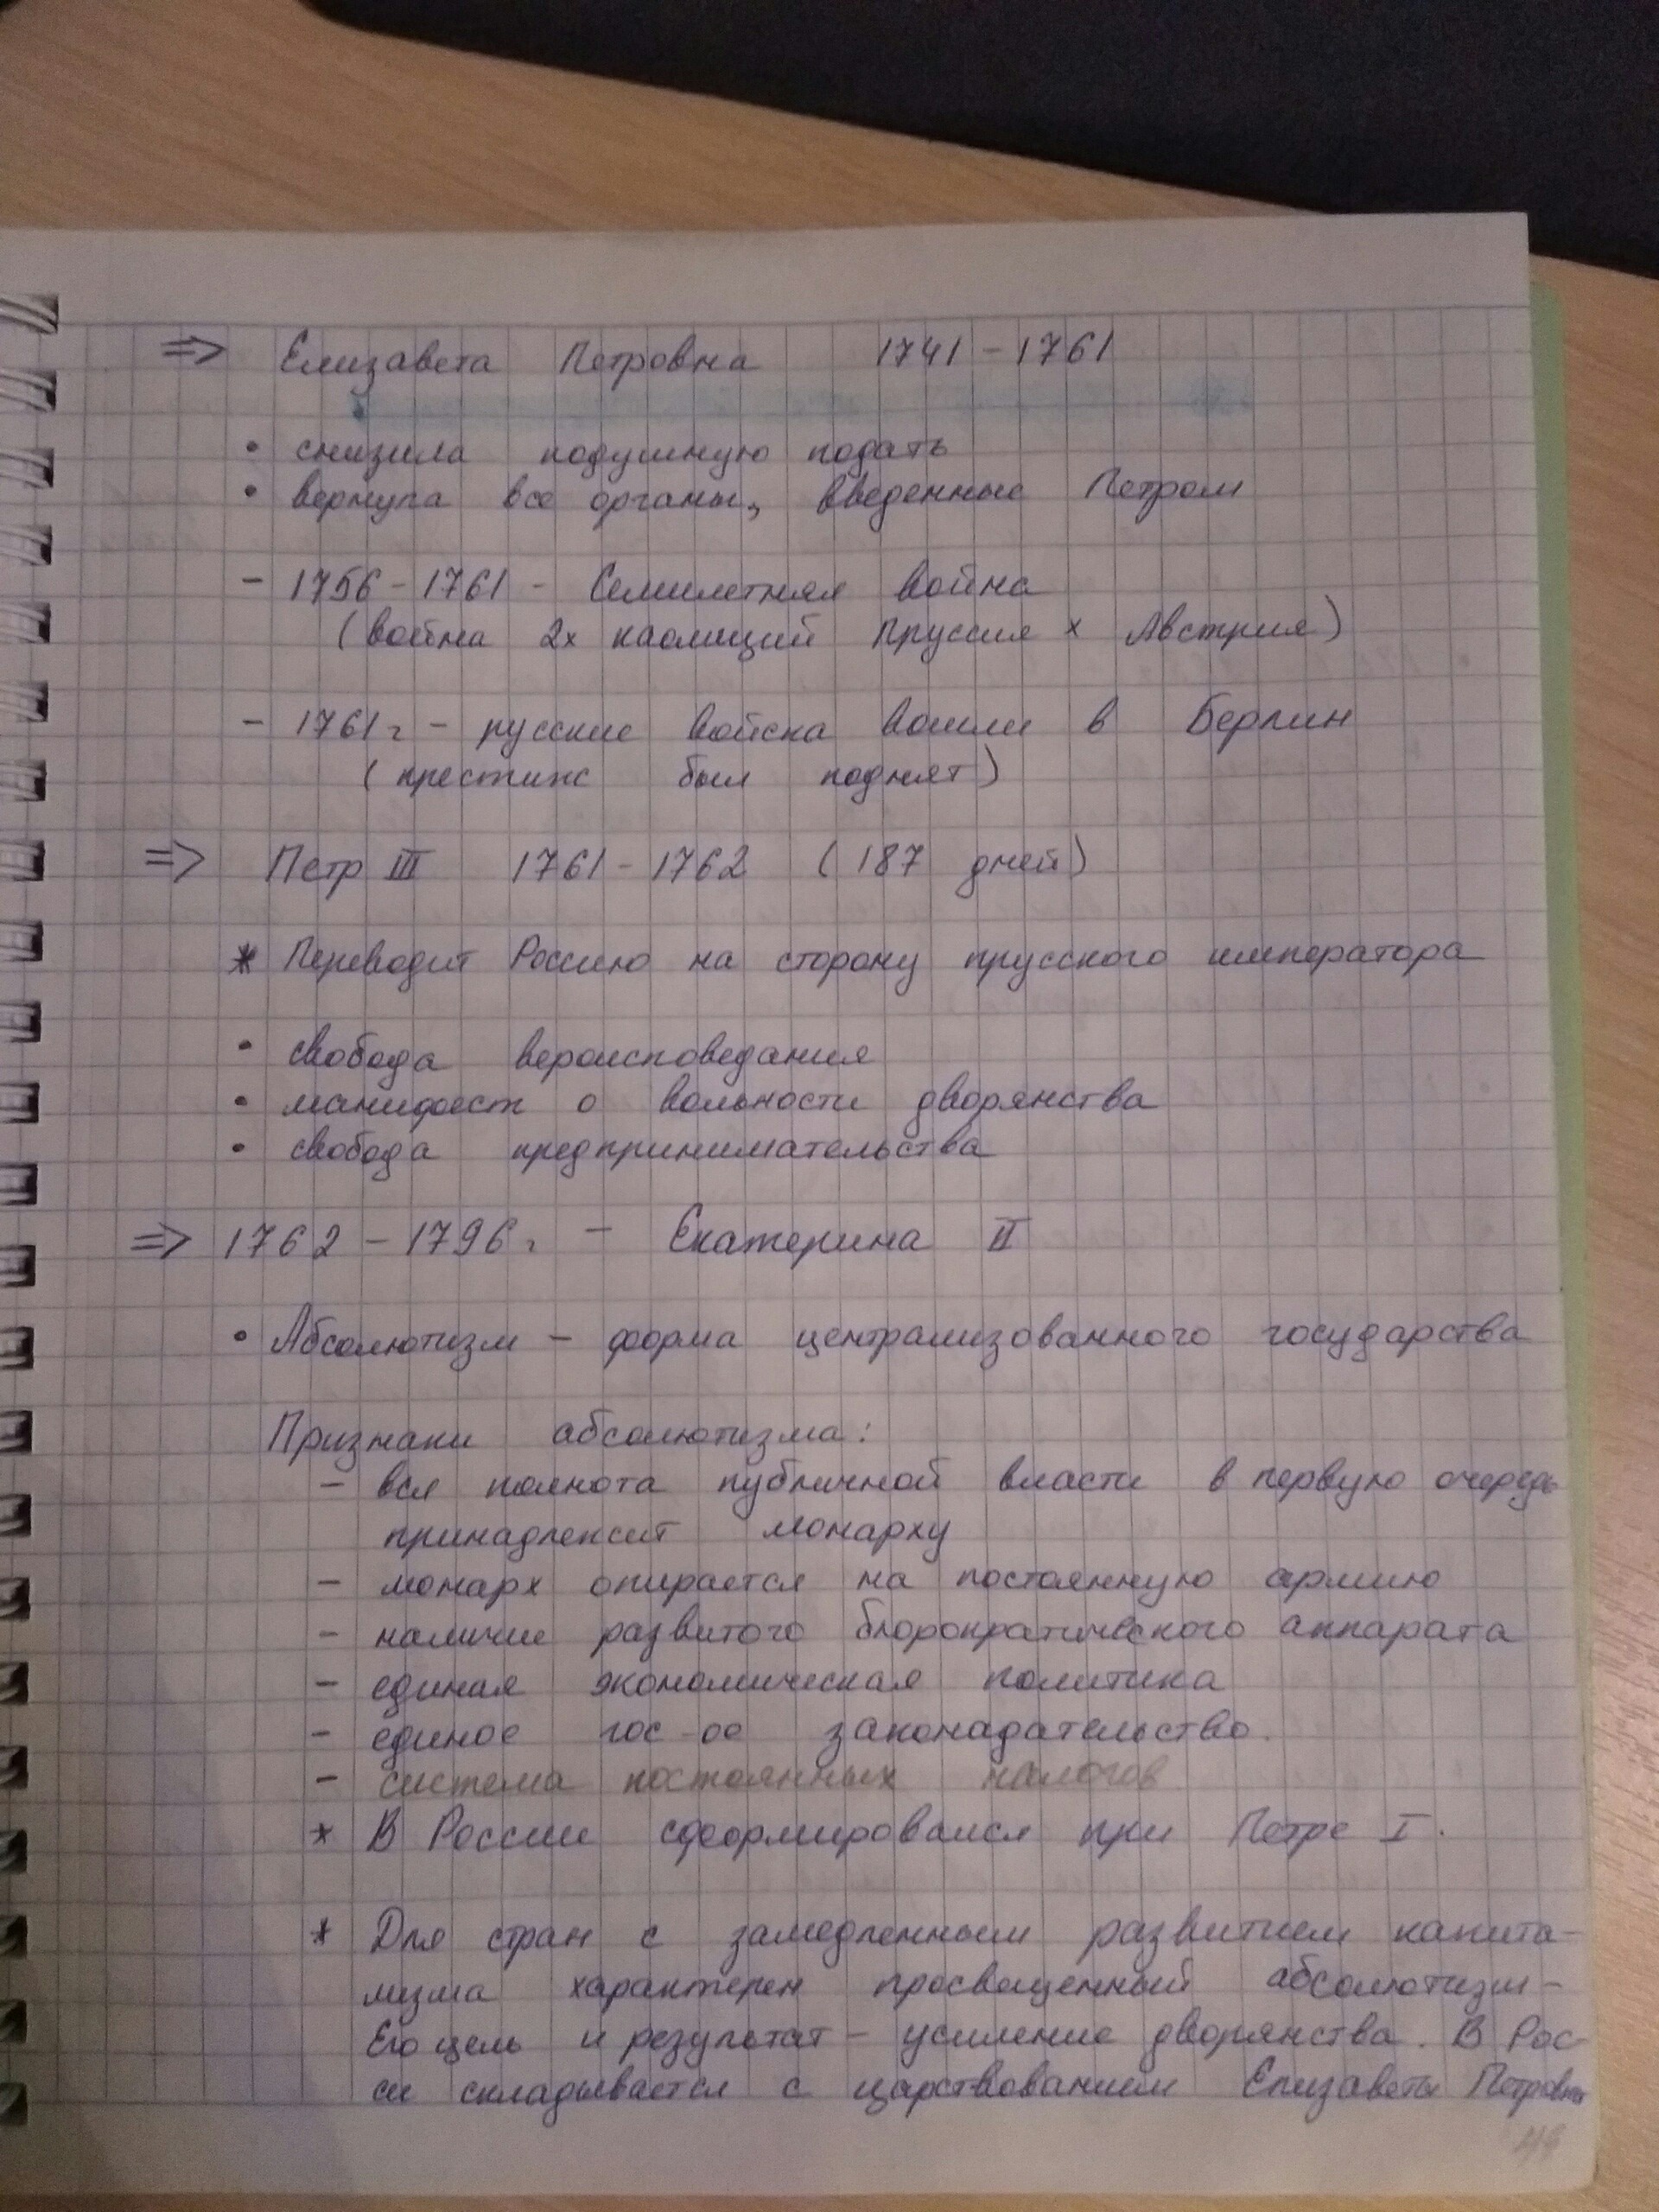 => Елизавета Петровна 1741 - 1761
• снизила подушную подать
• вернула все органы, введенные Петром
- 1756 - 1761 - Семилетняя война
(война 2х каолиций Пруссия х Австрия)
- 1761г - русские войска вошли в Берлин
(престиж был поднят)
=> Петр III 1761 - 1762 (187 дней)
* Переводит Россию на сторону прусского императора
• свобода вероисповедания
• манифест о вольности дворянства
• свобода предпринимательства
=> 1762 - 1796г. - Екатерина II
• Абсолютизм - форма централизованного государства
Признаки абсолютизма:
- вся полнота публичной власти в первую очередь
принадлежит монарху
- монарх опирается на постоянную армию
- наличие развитого бюрократического аппарата
- единая экономическая политика
- единое гос-ое законадательство.
- система постоянных налогов
* В России сформировался при Петре I.
* Для стран с замедленным развитием капита-
лизма характерен просвещенный абсолютизм -
Его цель и результат - усиление дворянства. В Рос-
си складывается с царствованием Елизаветы Петровны